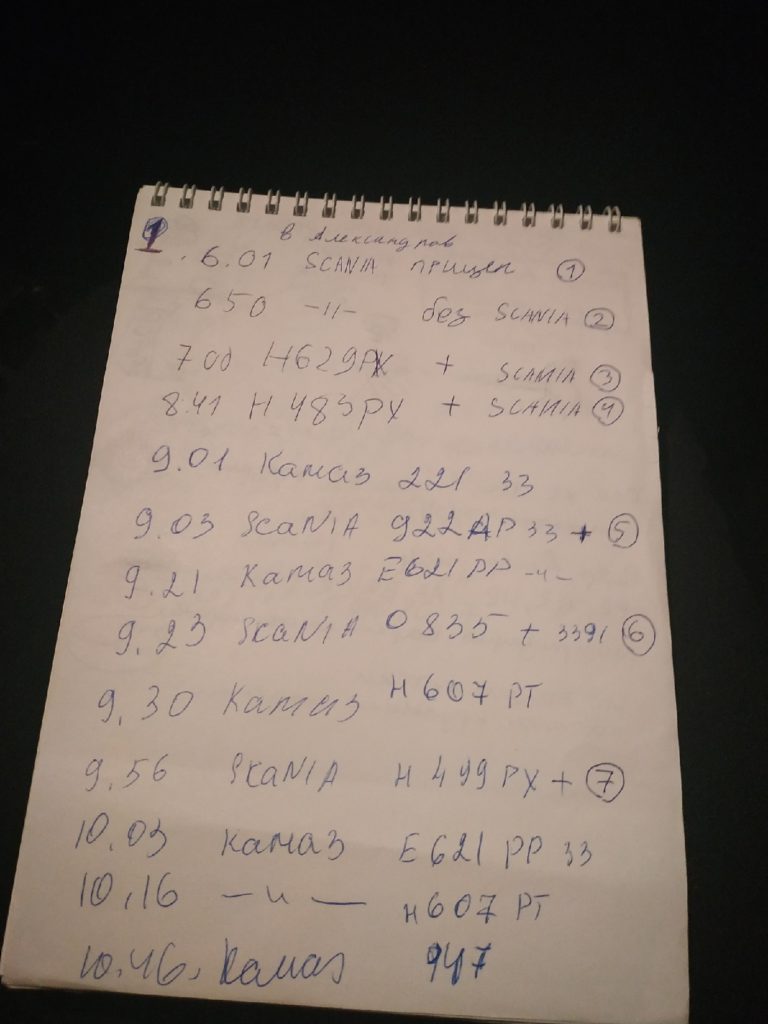 1 в Александров
6.01 SCANIA прицеп ①
650 -11- без SCANIA ②
700 Н629РХ + SCANIA ③
8.41 Н 483 РХ + SCANIA ④
9.01 Камаз 221 33
9.03 ScaNIA 922АР 33 + ⑤
9.21 Камаз Е621 РР -"-
9.23 SkaNIA О 835 + 3391 ⑥
9,30 Камаз Н 607 РТ
9,56 SkaNIA Н 499 РХ + ⑦
10,03 Камаз Е 621 РР 33
10,16 — " — Н607 РТ
10.46. Камаз 947